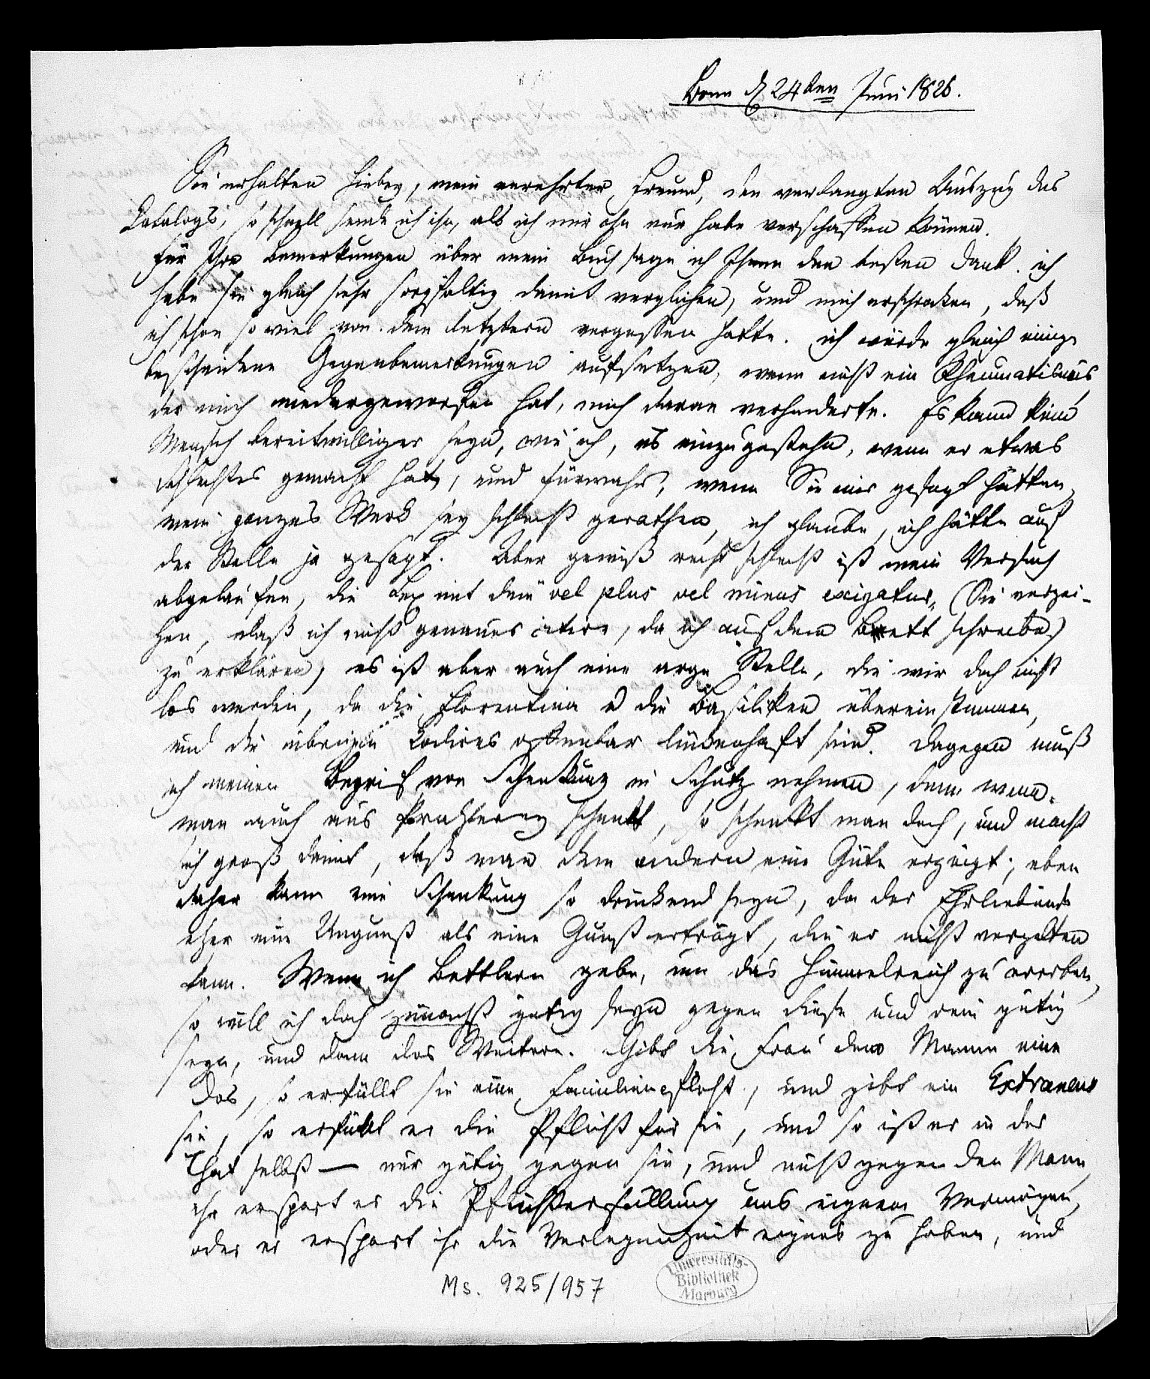 Bonn d. 24ten Juni 1826.
Sie erhalten hiebey, mein verehrter Freund, den verlangten Auszug des
Catalogs, so schnell sende ich ihn, als ich mir ihn nur habe verschaffen können.
Für Ihre Bemerkungen über mein Buch sage ich Ihnen den besten Dank. ich
habe sie gleich sehr sorgfältig damit verglichen, und mich erschrocken, daß
ich schon so viel von dem letztern vergessen hatte. ich würde gleich einige
bescheidene Gegenbemerkungen aufsetzen, wenn nicht ein Rheumatismus
der mich niedergeworfen hat, mich daran verhinderte. Es kann kein
Mensch bereitwilliger seyn, wie ich, es einzugestehn, wenn er etwas
schlechtes gemacht hat, und fürwahr, wenn Sie mir gesagt hätten,
mein ganzes Werk sey schlecht gerathen, ich glaube, ich hätte auf
der Stelle ja gesagt. Aber gewiß recht schlecht ist mein Versuch
abgelaufen, die Lex mit dem vel plus vel minus exigatur, (Sie verzei-
hen, daß ich nicht genauer citire, da ich aus dem Bett schreibe)
zu erklären; es ist aber auch eine arge Stelle, die wir doch nicht
los werden, da die Florentina u die Basiliken übereinstimmen,
und die übrigen Codices offenbar lückenhaft sind. Dagegen muß
ich meinen Begrif von Schenkung in Schutz nehmen, denn wenn
man auch aus Prahlerey schenkt, so schenkt man doch, und macht
sich groß damit, daß man dem andern eine Güte erzeigt; eben
daher kann eine Schenkung so drückend seyn, da der Ehrliebende
eher eine Ungunst als eine Gunst erträgt, die er nicht vergelten
kann. Wenn ich Bettlern gebe, um das Himmelreich zu ererben,
so will ich doch zunächst gütig seyn gegen diese und rein gütig
seyn, und dann das Weitere. Gibt die Frau dem Manne eine
Dos, so erfüllt sie eine Familienpflicht, und gibt ein Extraneus
sie, so erfüllt er die Pflicht für sie, und so ist er in der
That selbst — nur gütig gegen sie, und nicht gegen den Mann,
ihr erspart er die Pflichterfüllung aus eignem Vermögen,
oder er erspart ihr die Verlegenheit eignes zu haben, und
Ms. 925/957
Universitäts-
Bibliothek
Marburg